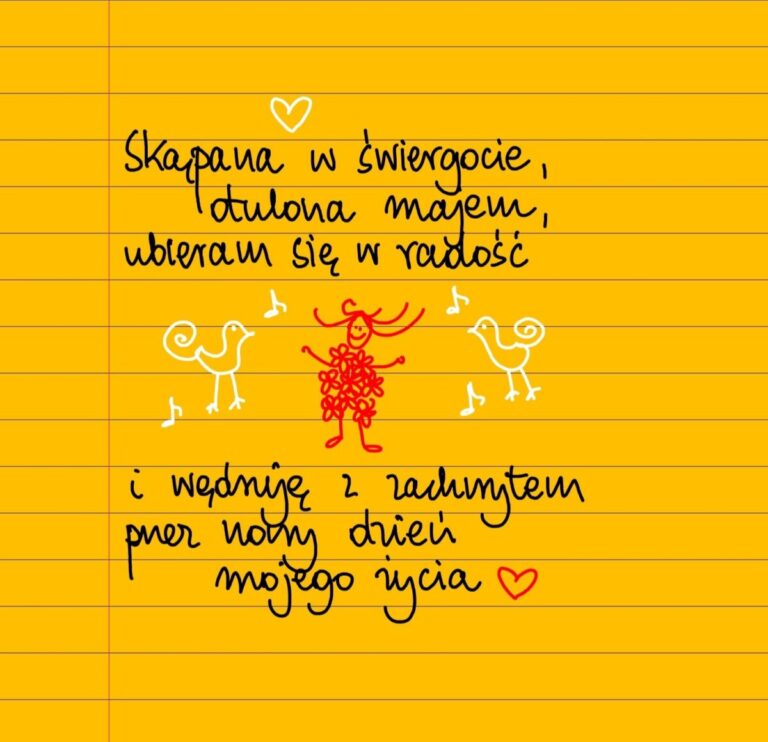 Skąpana w świergocie,
otulona majem,
ubieram się w radość
i wędruję z zachwytem
przez nowy dzień
mojego życia